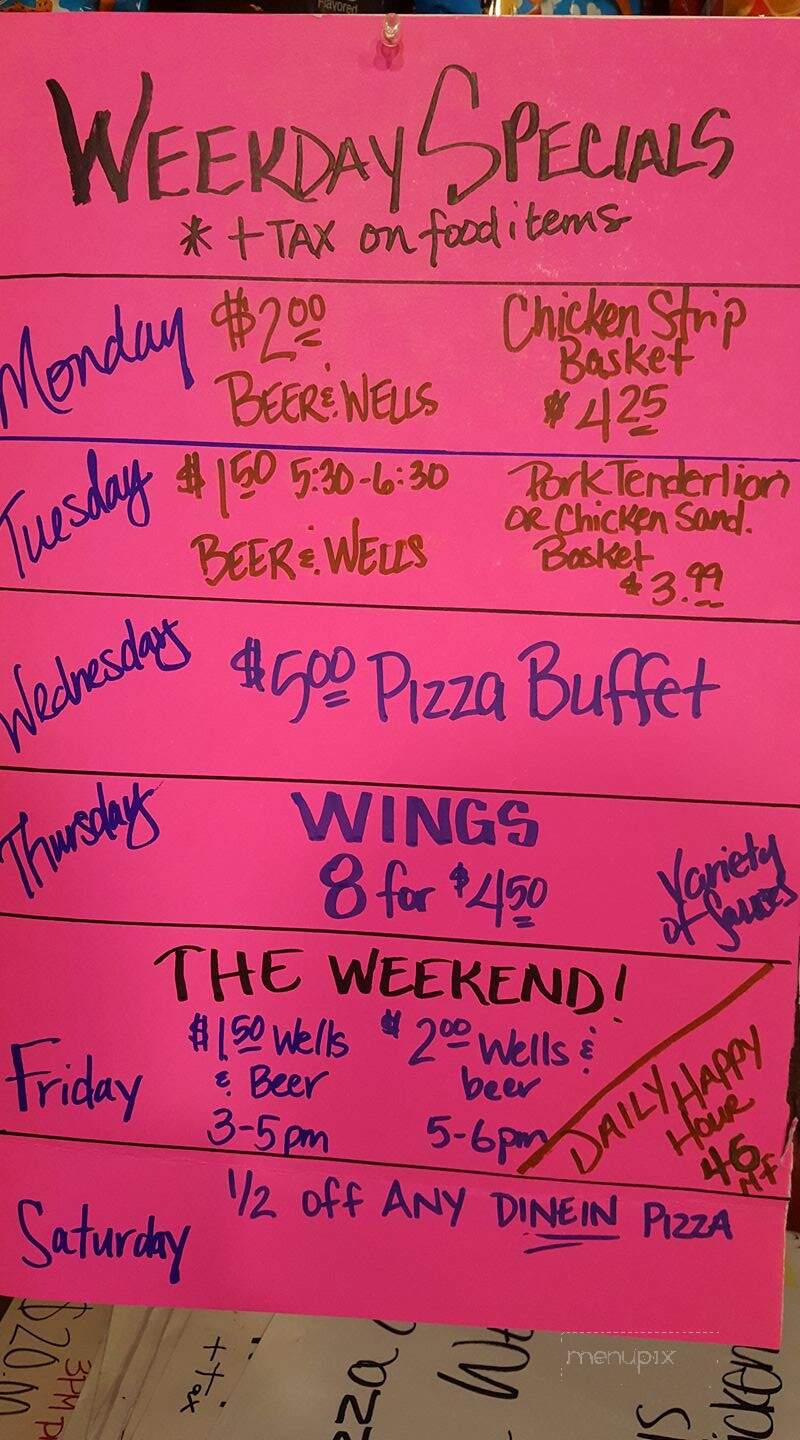 Flavored
WEEKDAY SPECIALS
* + TAX on food items
Monday
$2.00
BEER & WELLS
Chicken Strip
Basket
$4.25
Tuesday
$1.50 5:30-6:30
BEER & WELLS
Pork Tenderlion
OR Chicken Sand.
Basket
$3.99
Wednesday
$5.00 Pizza Buffet
Thursday
WINGS
8 for $4.50
Variety
of Sauces
THE WEEKEND!
Friday
$1.50 Wells
& Beer
3-5pm
$2.00 Wells &
beer
5-6pm
DAILY HAPPY
Hour
4-6
M-F
Saturday
1/2 off ANY DINEIN PIZZA
$20.00
3PM
+ tax
menupix